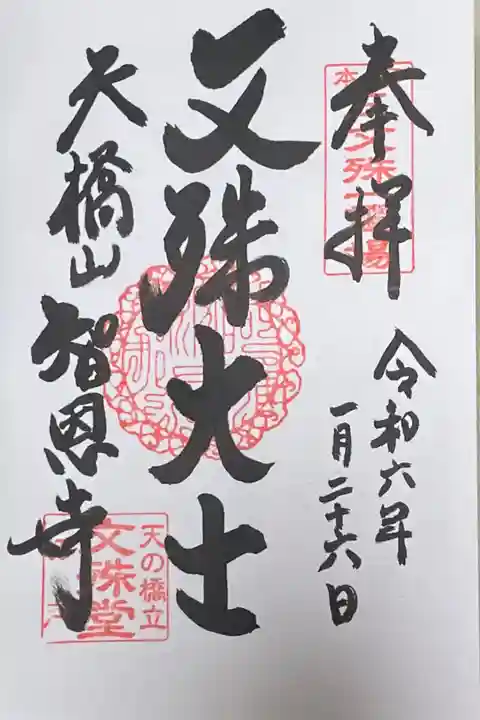 奉拝
令和六年
一月二十六日
文殊大士
天橋山
智恩寺
天の橋立
文殊堂